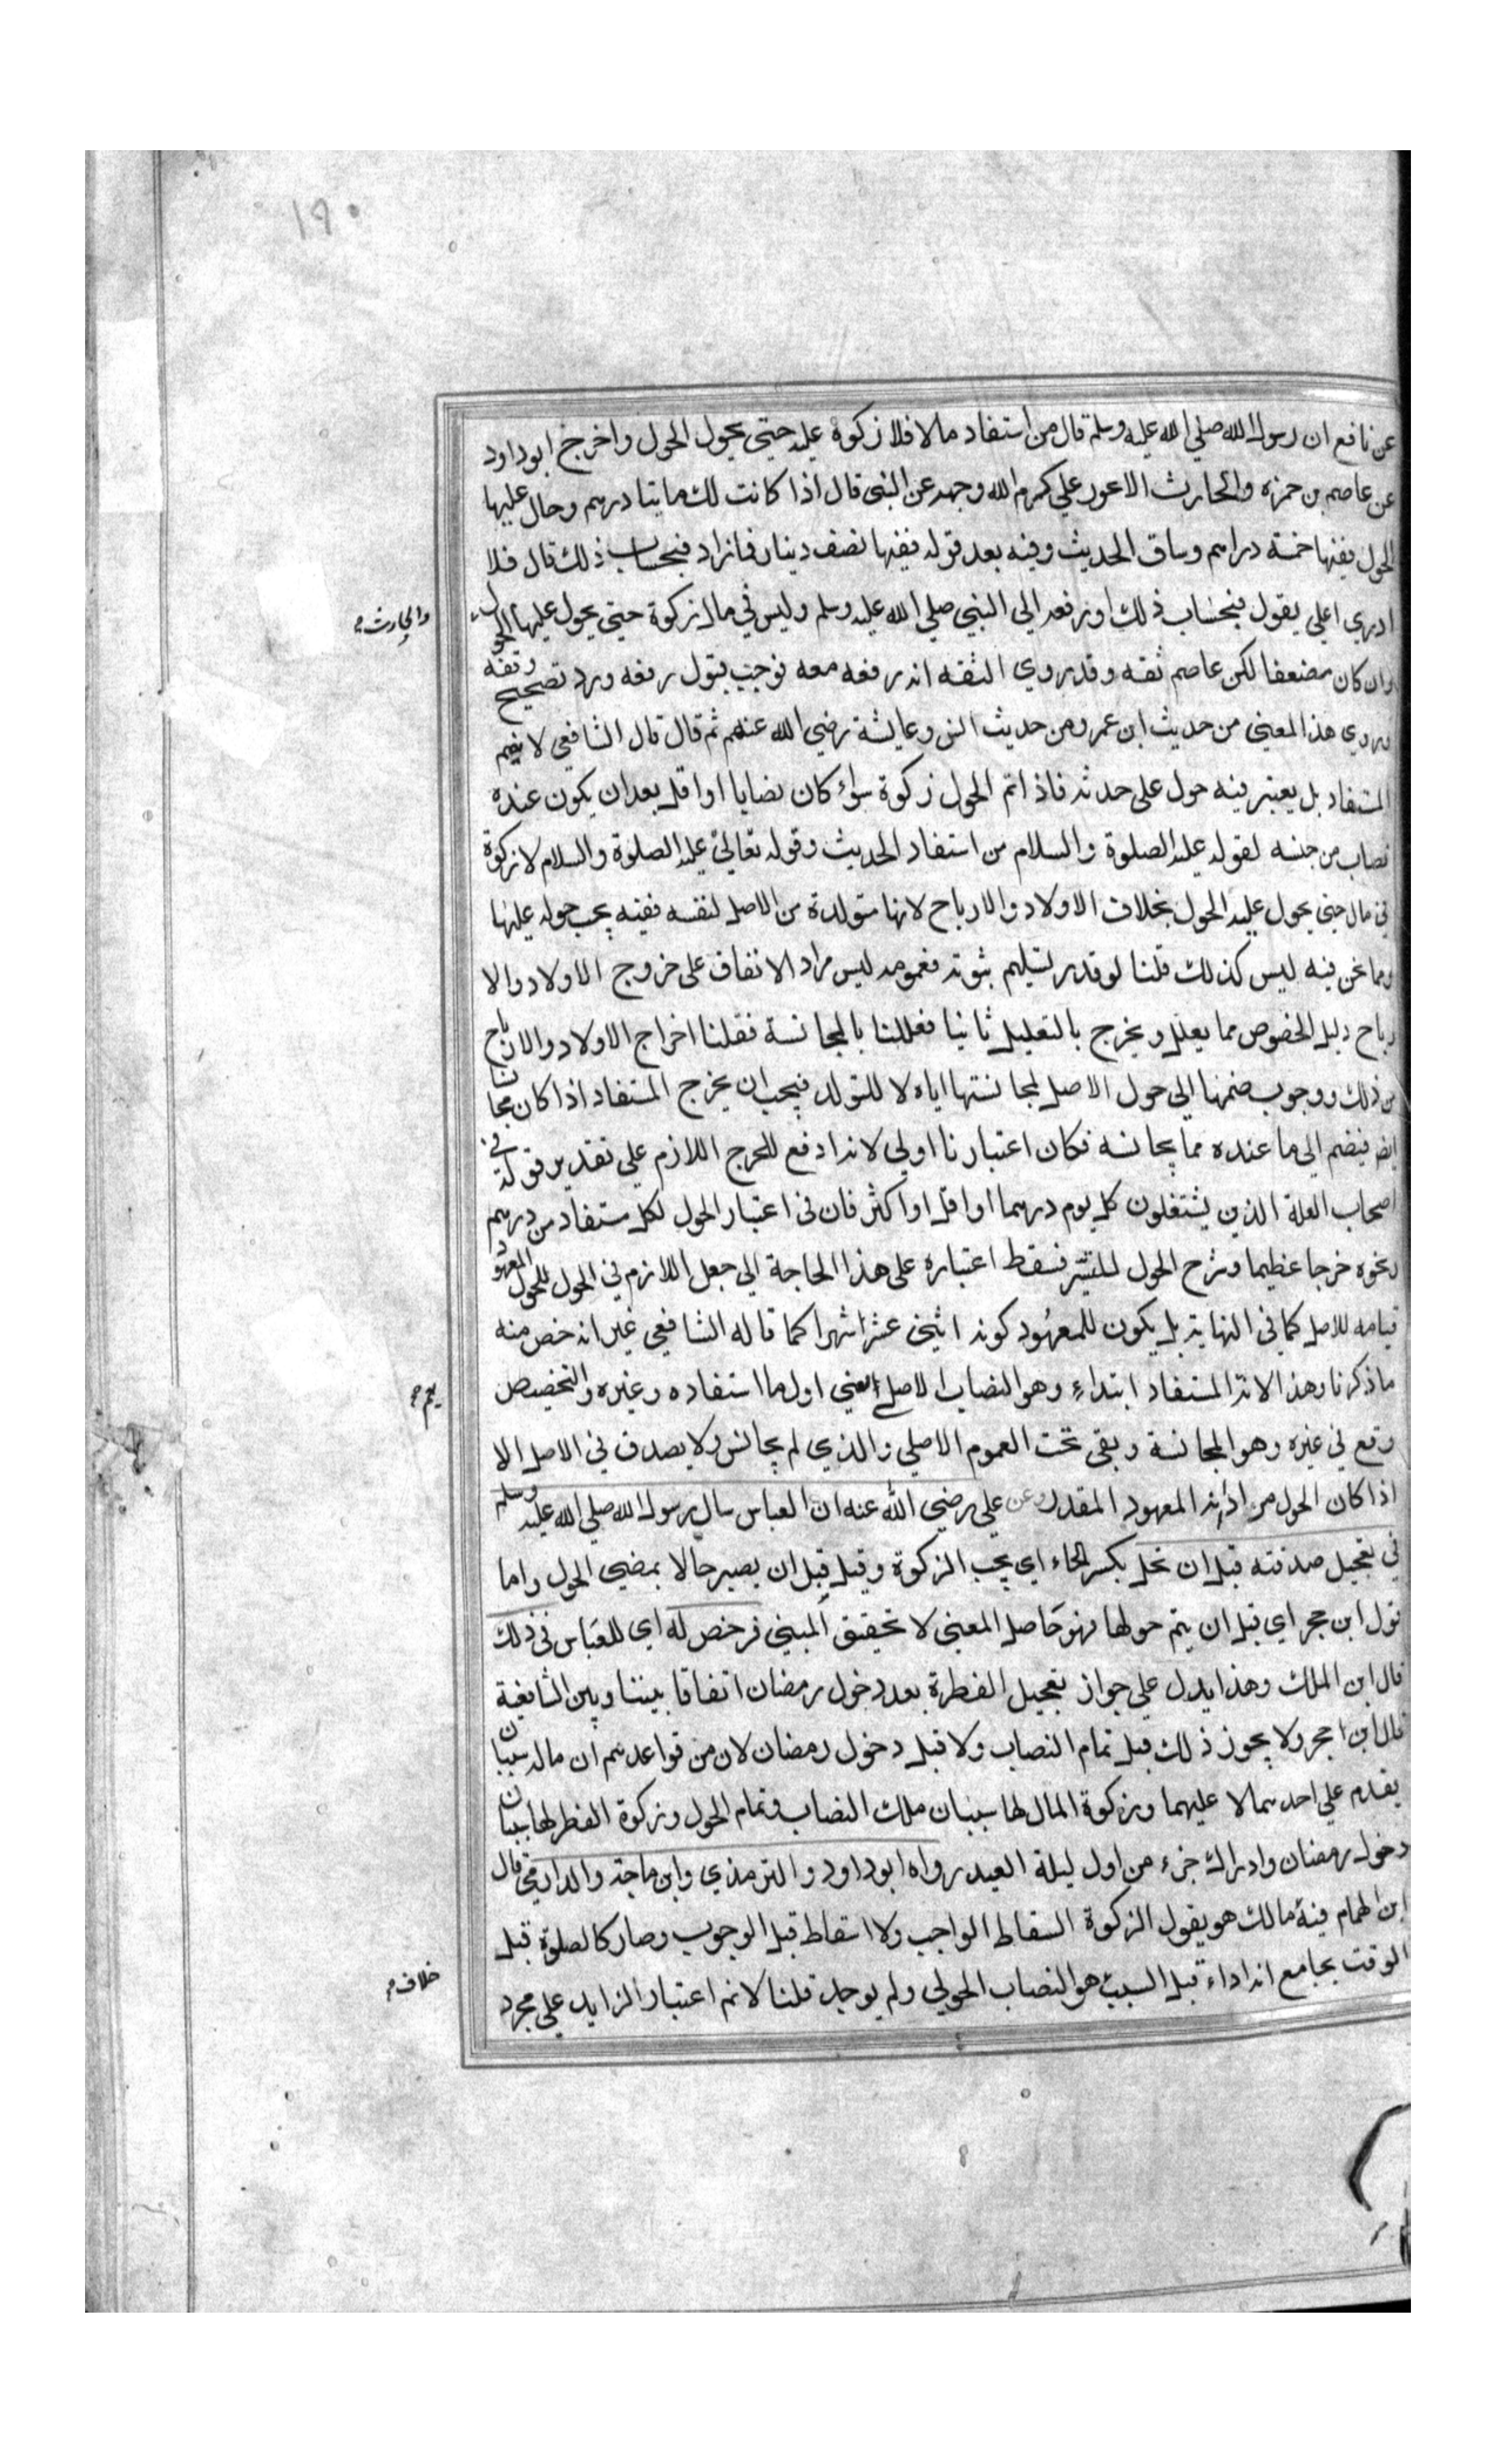 ١٩٠
عن نافع ان رسول الله صلي الله عليه وسلم قال من استفاد مالا فلا زكوة عليه حتي يحول الحول واخرج ابو داود
عن عاصم بن حمزه والحارث الاعور علي كرم الله وجهه عن النبي قال اذا كانت لك مايتا درهم وحال عليها
الحول ففيها خمسة دراهم وساق الحديث وفيه بعد قوله ففيها نصف دينار فما زاد فبحساب ذلك قال فلا
ادري اعلي يقول فبحساب ذلك او رفعه الي النبي صلي الله عليه وسلم وليس في مال زكوة حتي يحول عليها الحول
والحارث
وان كان مضعفا لكن عاصم ثقه وقد روي الثقه انه رفعه معه فوجب قبول رفعه ورد تصحيح وقفه
وروي هذا المعني من حديث ابن عمر ومن حديث انس وعايشة رضي الله عنهم ثم قال قال الشافعي لا يضم
المستفاد بل يعتبر فيه حول علي حدته فاذا تم الحول زكوة سواء كان نصابا او اقل بعد ان يكون عنده
نصاب من جنسه لقوله عليه الصلوة والسلام من استفاد الحديث وقوله تعالي عليه الصلوة والسلام لا زكوة
في مال حتي يحول عليه الحول بخلاف الاولاد والارباح لانها متولدة من الاصل لنفسه ففيه يجب حوله عليها
وما نحن فيه ليس كذلك قلنا لو قدر تسليم ثبوته فعمومه ليس مراد الاتفاق علي خروج الاولاد والا
رباح دليل الخصوص مما يعلل ويخرج بالتعليل ثانيا فعللنا بالمجانسة فقلنا اخراج الاولاد والارباح
من ذلك ووجوب ضمنها الي حول الاصل لمجانستها اياه لا للتولد فيجب ان يخرج المستفاد اذا كان مجانسا
ايض فيضم الي ما عنده مما يجانسه فكان اعتبارنا اولي لانه ادفع للحرج اللازم علي تقدير قوله في
اصحاب الغلة الذين يشتغلون كل يوم درهما او اقل او اكثر فان في اعتبار الحول لكل مستفاد من درهم
ونحوه حرجا عظيما وشرح الحول للتيسر فسقط اعتباره علي هذا الحاجة الي جعل اللازم في الحول للحول المعهود
قيامه للاصل كما في النهاية بل يكون للمعهود كونه اثني عشر شهرا كما قاله الشافعي غير انه خص منه
ماذكرنا وهذا لانه المستفاد ابتداء وهو النصاب الاصلي اعني اول ما استفاده وغيره والتخصيص
يعم
وقع في غيره وهو المجانسة وبقي تحت العموم الاصلي والذي لم يجانس ولا يصدق في الاصل الا
اذا كان الحول مرادا به المعهود المقدر وعن علي رضي الله عنه ان العباس سال رسول الله صلي الله عليه وسلم
في تعجيل صدقته قبل ان تحل بكسر الحاء اي يجب الزكوة وقيل قبل ان يصير حالا بمضي الحول واما
قول ابن حجر اي قبل ان يتم حولها فهو حاصل المعني لا تحقيق المبني فرخص له اي للعباس في ذلك
قال ابن الملك وهذا يدل علي جواز تعجيل الفطرة بعد دخول رمضان اتفاقا بيننا وبين الشافعية
قال ابن حجر ولا يجوز ذلك قبل تمام النصاب ولا قبل دخول رمضان لان من قواعدهم ان ماله سببان
يقدم علي احدهما لا عليهما وزكوة المال لها سببان ملك النصاب وتمام الحول وزكوة الفطر لها سببان
دخول رمضان وادراك جزء من اول ليلة العيد رواه ابو داود والترمذي وابن ماجة والدارمي قال
ابن الهمام فيه مالك هو يقول الزكوة اسقاط الواجب ولا اسقاط قبل الوجوب وصار كالصلوة قبل
خلاف
الوقت بجامع انه اداء قبل السبب هو النصاب الحولي ولم يوجد قلنا لا نم اعتبار الزايد علي مجرد